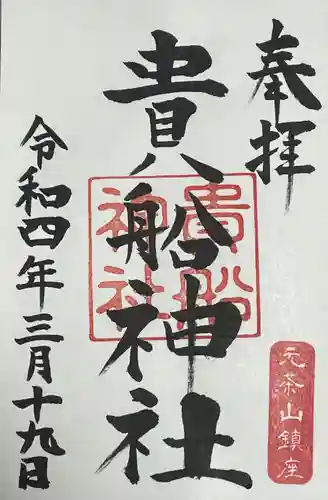 奉拝
元茶山鎮座
貴船神社
貴船神社
令和四年三月十九日